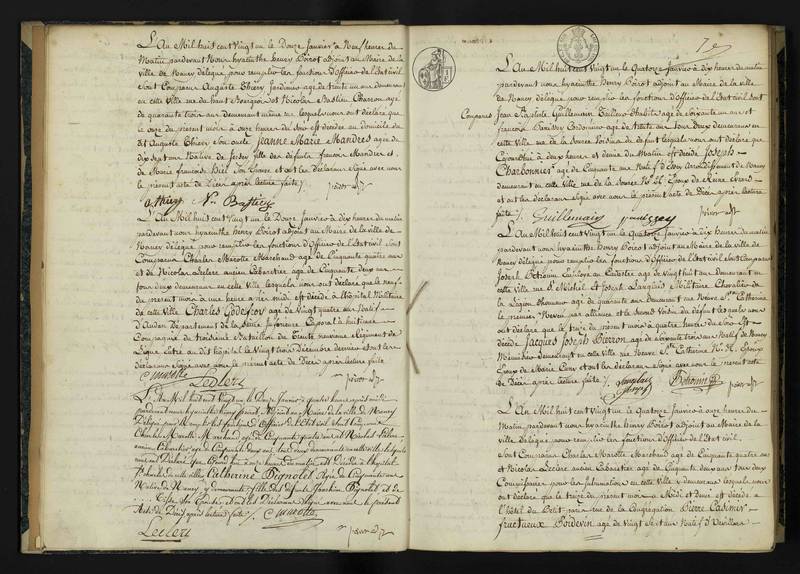 L'An Mil huit cent Vingt un le Douze Janvier à Neuf heures du
Matin pardevant Nous hyacinthe henry Poirot adjoint au Maire de la
ville de Nancy délégué pour remplir les fonctions d'Officier de l'Etat civil
Sont Comparus Auguste Thiery Jardinier agé de trente un ans demeurant
en cette Ville rue du haut Bourgeois et Nicolas Bastien Charron agé
de quarante trois ans demeurant même rue lesquels nous ont déclaré que
le onze du present mois à onze heures du soir est décédée au domicile du
dit Auguste Thiery son oncle Jeanne Marie Mandres agée de
dix sept ans Native de Jersey fille des défunts francois Mandres et
de Marie francoise Biel Son Epouse et ont les déclarans signé avec nous
le present acte de Décès après lecture faite
a thiery Ns Bastien poirot adj
L'An Mil huit cent Vingt un le Douze Janvier à dix heures du matin
pardevant nous hyacinthe Henry Poirot adjoint au Maire de la Ville de
Nancy délégué pour remplir les fonctions d'Officier de l'Etat civil Sont
Comparus Charles Marotte Marchand agé de Cinquante quatre ans
et de Nicolas Leclerc ancien Cabaretier agé de Cinquante Deux ans
tous deux demeurans en cette Ville lesquels nous ont déclaré que le neuf
du present mois à une heure après midi est décédé à l'hôpital Militaire
de cette Ville Charles Godefroy agé de Vingt quatre ans Natif
Département de la Seine Inférieure Caporal à huitieme
Compagnie du troisieme Bataillon de Trente neuvieme Régiment de
Ligne entré au dit hôpital le Vingt trois Décembre dernier et ont les
déclarans Signé avec nous le present acte de Décès après lecture faite
C marotte Leclerc poirot adj
L'An Mil huit cent Vingt un le Douze Janvier à quatre heures après midi
pardevant nous hyacinthe henry poirot Adjoint au Maire de la ville de Nancy
Délégué pour remplir les fonctions d'Officier de l'Etat civil Sont Comparus
Charles Marotte Marchand agé de Cinquante quatre ans et Nicolas Leclerc
ancien Cabaretier agé de Cinquante deux ans tous deux demeurans en cette ville lesquels
nous ont Déclaré que
de cette ville Catherine Pignolet Agée de Cinquante ans
Native de Nancy y demeurant fille des défunts Joachim Pignolet et de
et ont les Déclarans Signé avec nous le présent
Acte de Décès après lecture faite ./. C marotte
Leclerc poirot adj
7
L'An Mil huit cent Vingt un le Quatorze Janvier à dix heures du matin
pardevant nous hyacinthe Henry Poirot adjoint au Maire de la ville
de Nancy délégué pour remplir les fonctions d'Officier de l'Etat civil sont
Comparus Jean Baptiste Guillemain Tailleur d'habits agé de soixante un ans et
francois Cordonnier agé de trente un ans tous deux demeurans en
cette ville rue de la Source Voisins du défunt lesquels nous ont déclaré que
Cejourd'hui à deux heures et demie du Matin est décédé Joseph
Charbonnier agé de Cinquante un ans Natif d' Arrondissement de Nancy
demeurant en cette ville rue de la Source No. 21. Epoux de Reine Erard
et ont les déclarans Signé avec nous le present acte de Décès après lecture
faite ./. Guillemain poirot adj
L'An Mil huit cent Vingt un le Quatorze Janvier à dix heures du matin
pardevant nous hyacinthe Henry Poirot adjoint au Maire de la Ville de
Nancy délégué pour remplir les fonctions d'Officier de l'Etat civil sont Comparus
Joseph agé de vingt huit ans demeurant en
cette ville rue St. Michel et Joseph Langlois Militaire Chevalier de
la Légion d'honneur agé de quarante ans demeurant rue Neuve Ste. Catherine
le premier Neveu par alliance et le second Voisin du défunt lesquels nous
ont déclaré que le treize du present mois à quatre heures du soir est
décédé Jacques Joseph Pierron agé de soixante trois ans Natif de Nancy
Menuisier demeurant en cette ville rue Neuve Ste. Catherine No. 21. Epoux
de Marie Cuny et ont les déclarans Signé avec nous le present acte
de Décès après lecture faite ./. Langlois poirot adj
L'An Mil huit cent Vingt un le Quatorze Janvier à onze heures du
Matin pardevant nous hyacinthe Henry Poirot adjoint au Maire de la
ville délégué pour remplir les fonctions d'Officier de l'Etat civil
sont Comparus Charles Marotte Marchand agé de Cinquante quatre ans
et Nicolas Leclerc ancien Cabaretier agé de Cinquante deux ans tous deux
Commissaires pour les Inhumations en cette Ville y demeurans lesquels nous
ont déclaré que le treize du present mois à Midi et demi est décédé à
l'hôtel du Petit paris rue de la Congrégation Pierre Casimir
fructueux Boidevin agé de vingt sept ans Natif d'